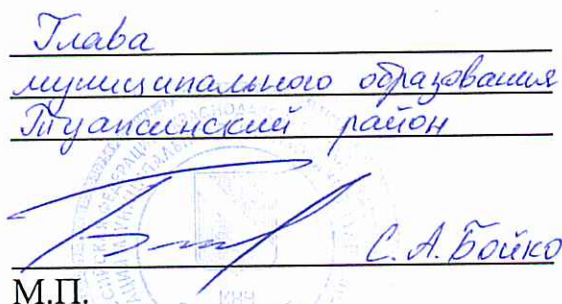 Глава
муниципального образования
Туапсинский район
С. А. Бойко
М.П.